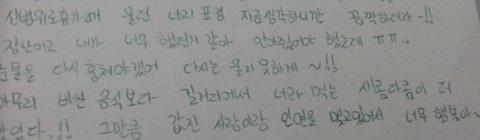 신병위로휴가때 울던 니 표정 지금생각하니깐 끔찍하더라~!!
장난이고 내가 너무 했던거 같아 안아줬어야 했는데 ㅠㅠ..
눈물을 다시 훔쳐야겠어 다시는 울지못하게 ~!!
아무리 비싼 음식보다 길거리에서 너랑 먹는 새콤다콤이 더
그만큼 값진 사람이랑 인연을 맺고있어서 너무 행복아~